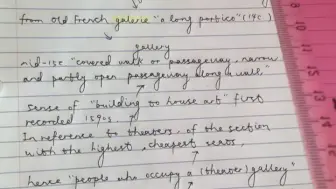 from old french galerie "a long portico" (14c)
gallery
mid-15c "covered walk or passageway, narrow
and partly open passageway along a wall."
sense of "building to house art" first
recorded 1590s.
In reference to theaters, of the section
with the highest, cheapest seats,
hence "people who occupy a (theater) gallery"